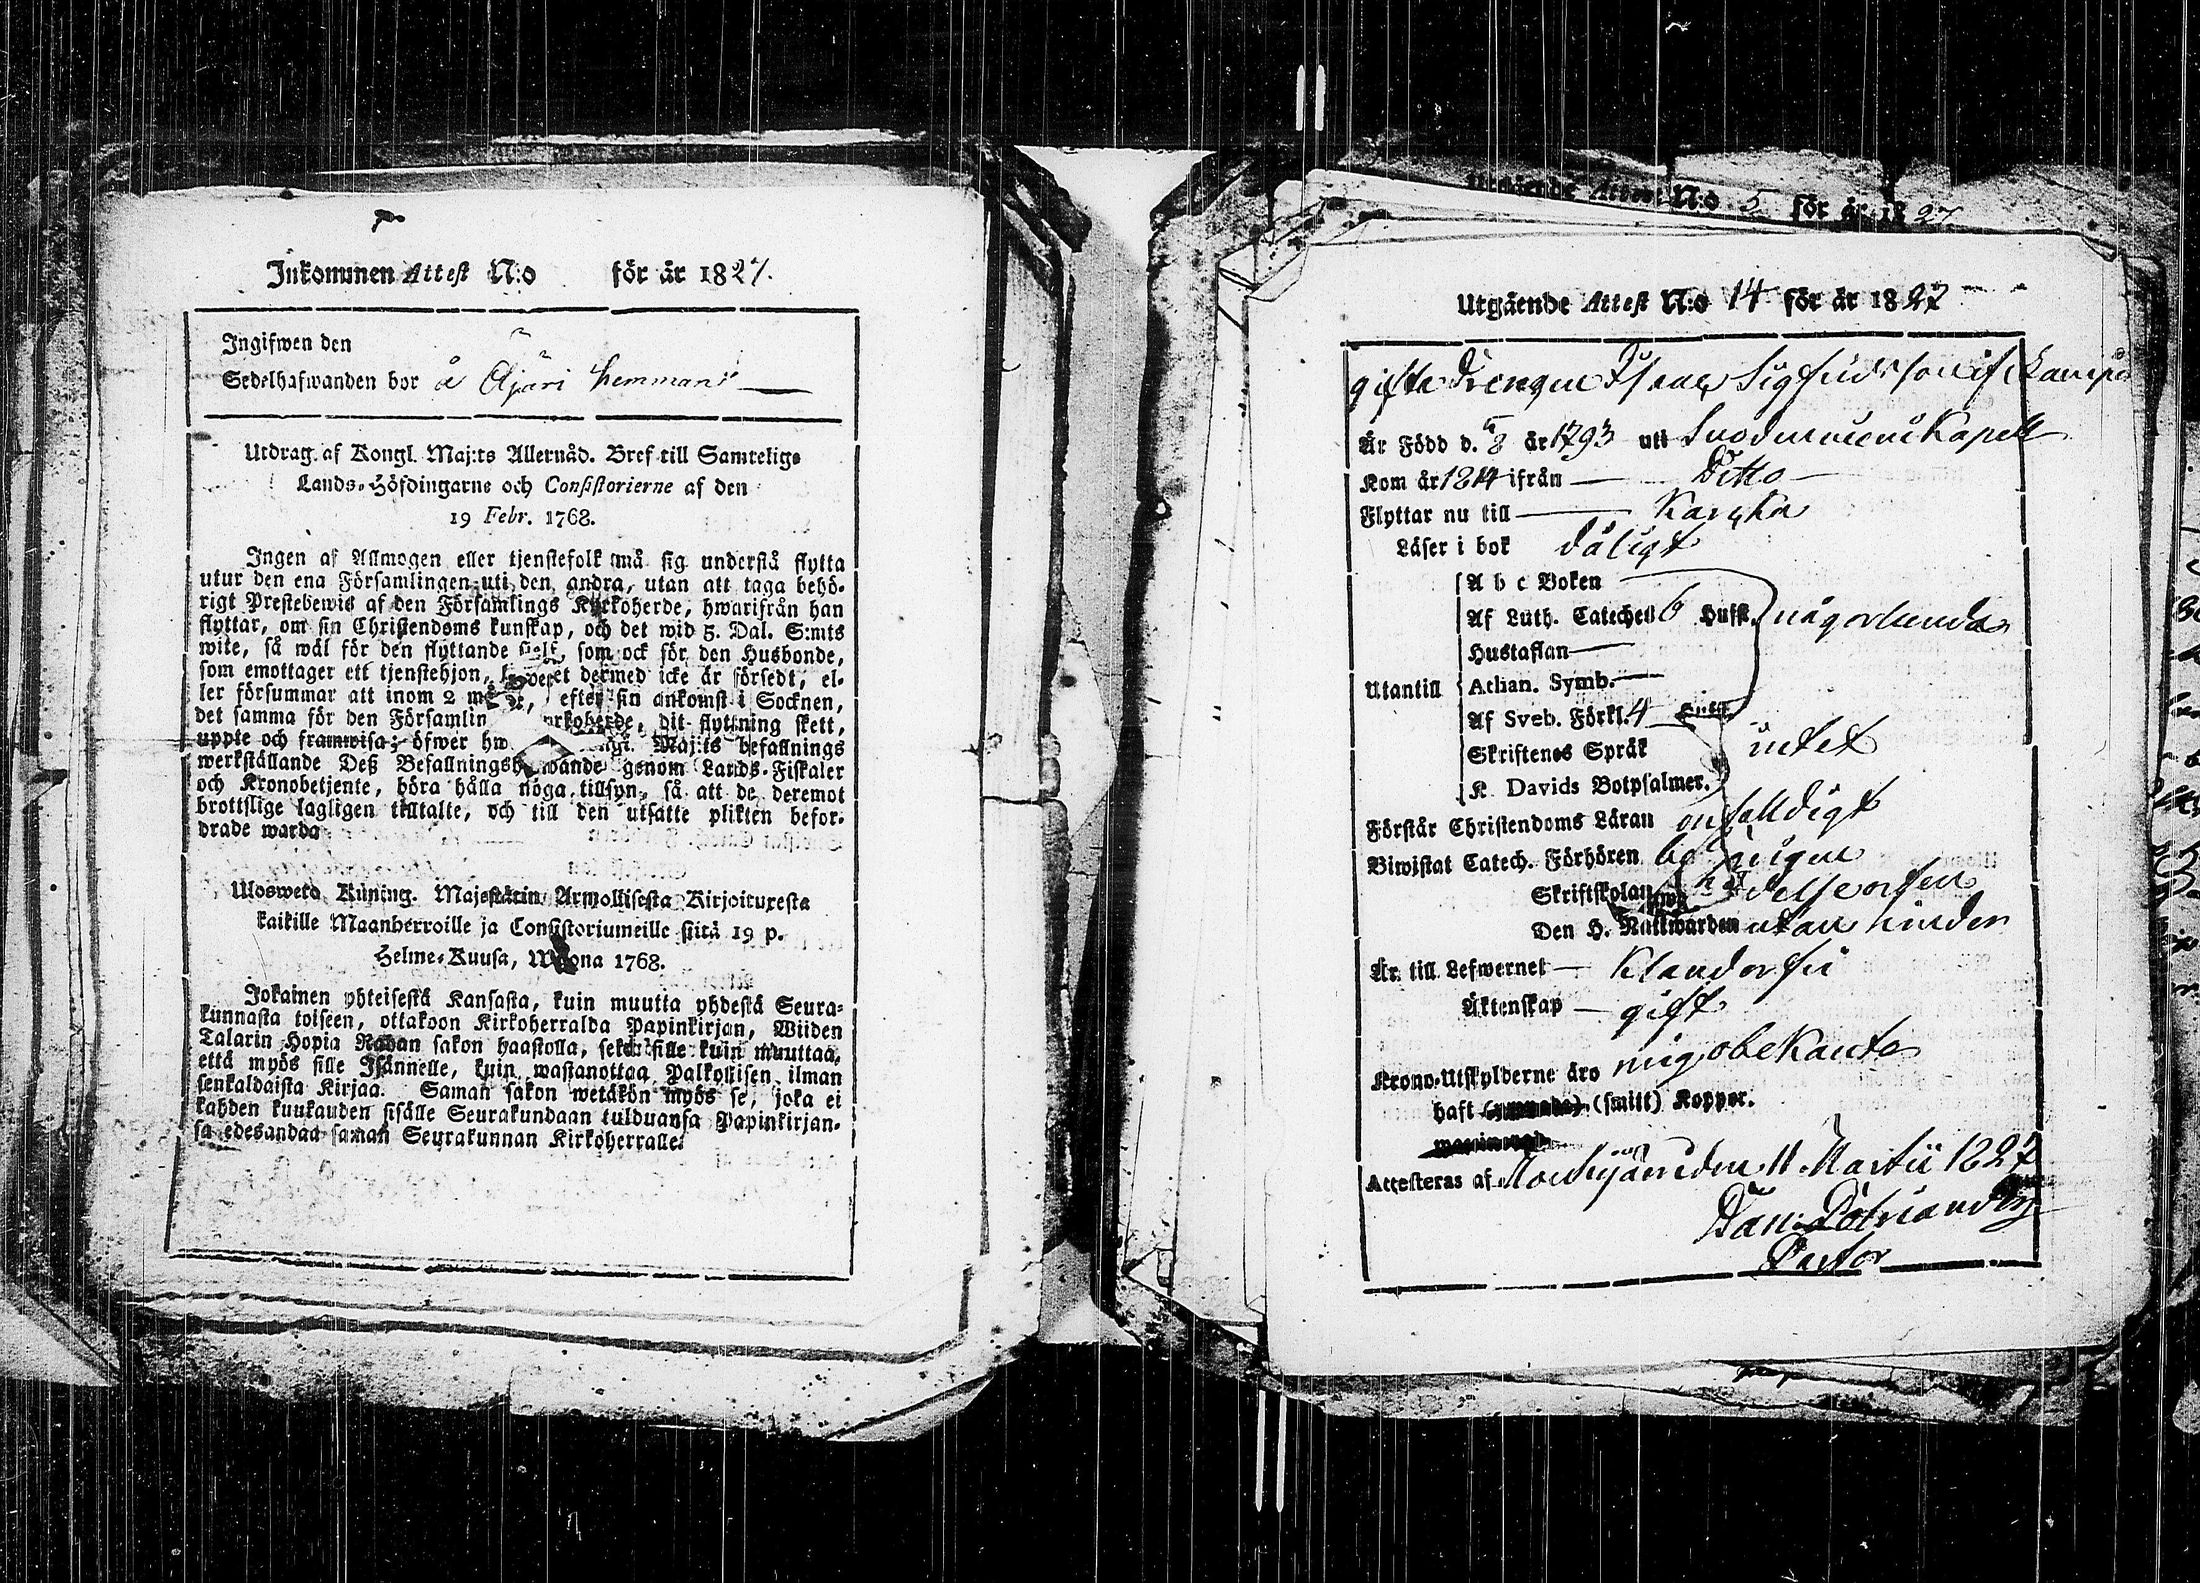 Inkommen Attest N:o för år 1827.
Ingifwen den
Sedelhafwanden bor å Äjäri hemman
Utdrag af Kongl. Maj:ts Allernåd. Bref till Samtelige
Lands-Höfdingarne och Consistorierne af den
19 Febr. 1768.
Ingen af Allmogen eller tjenstefolk må sig understå flytta
utur den ena Församlingen uti den andra, utan att taga behö-
rigt Prestebewis af den Församlings Kyrkoherde, hwarifrån han
flyttar, om sin Christendoms kunskap, och det wid 5. Dal. S:mts
wite, så wäl för den flyttande sielf, som ock för den Husbonde,
som emottager ett tjenstehjon, hwilket dermed icke är försedt, el-
ler försummar att inom 2 efter sin ankomst i Socknen,
det samma för den Församlin kyrkoherde, dit flyttning skett,
uppte och framwisa; öfwer hw Maj:ts befallnings
werkställande Deß Befallningshafwande genom Lands-Fiskaler
och Kronobetjente, böra hålla noga tillsyn, så att de deremot
brottslige lagligen tilltalte, och till den utsatte plikten befor-
drade warda
Uloswetd Kuning. Majestätin Armollisesta Kirjoituxesta
kaikille Maanherroille ja Consistoriumeille siitä 19 p.
Helme-Kuusa, Wuonna 1768.
Jokainen yhteisestä Kansasta, kuin muutta yhdestä Seura-
kunnasta toiseen, ottakoon Kirkoherralda Papinkirjan, Wiiden
Talarin Hopia Rahan sakon haastolla, sekä sille kuin muuttaa,
että myös sille Isännelle, kuin wastanottaa Palkollisen ilman
senkaldaista Kirjaa. Saman sakon wetäkön myös se, joka ei
kahden kuukauden sisälle Seurakundaan tulduansa Papinkirjan-
sa edesandaa saman Seurakunnan Kirkoherralle.
Utgående Attest N:o 5 för år 1827
Utgående Attest N:o 14 för år 1827
gifta Drengen Isaac Sigfridsson if
Är Född d. 5/8 år 1793 uti Suodenniemi Kapell
Kom år 1814 ifrån Ditto
Flyttar nu till Karkku
Läser i bok dåligt
A b c Boken
Af Luth. Cateches 6 Hufst. någorlunda
Hustaflan
Athan. Symb.
Utantill
Af Sveb. Förkl. 4
Skriftenes Språk intet
K. Davids Botpsalmer.
Förstår Christendoms Läran enfalldigt
Biwistat Catech. Förhören
Skriftskolan
Den H. Nattwarden utan hinder
Är till Lefwernet klanderfri
Äktenskap gift
Krono-Utskylderne äro mig obekante
haft (smitt) Koppor.
Attesteras af Mouhijärvi den 11 Martii 1827
Dan:
Pastor